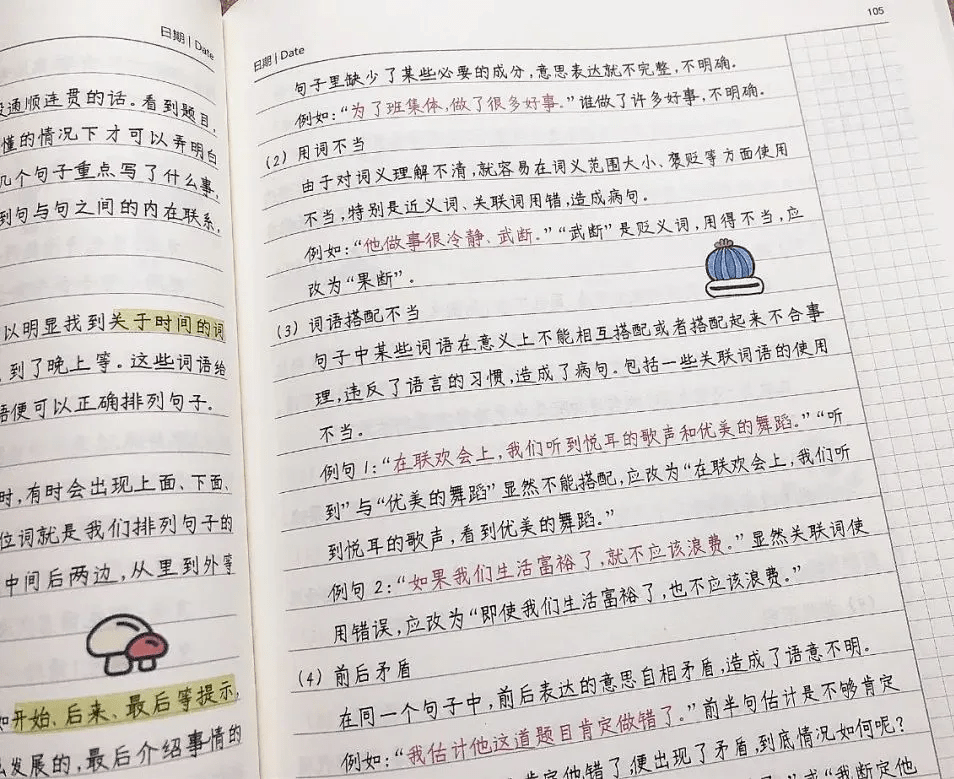 日期 | Date
没通顺连贯的话。看到题目,
懂的情况下才可以弄明白
几个句子重点写了什么事,
到句与句之间的内在联系,
以明显找到关于时间的词
到了晚上等。这些词语给
语便可以正确排列句子。
时,有时会出现上面、下面、
位词就是我们排列句子的
中间后两边,从里到外等
如开始、后来、最后等提示,
发展的,最后介绍事情的
105
日期 | Date
句子里缺少了某些必要的成分,意思表达就不完整,不明确。
例如:“为了班集体,做了很多好事。”谁做了许多好事,不明确。
(2) 用词不当
由于对词义理解不清,就容易在词义范围大小、褒贬等方面使用
不当,特别是近义词、关联词用错,造成病句。
例如:“他做事很冷静、武断。”“武断”是贬义词,用得不当,应
改为“果断”。
(3) 词语搭配不当
句子中某些词语在意义上不能相互搭配或者搭配起来不合事
理,违反了语言的习惯,造成了病句。包括一些关联词语的使用
不当。
例句1:“在联欢会上,我们听到悦耳的歌声和优美的舞蹈。”“听
到”与“优美的舞蹈”显然不能搭配,应改为“在联欢会上,我们听
到悦耳的歌声,看到优美的舞蹈。”
例句2:“如果我们生活富裕了,就不应该浪费。”显然关联词使
用错误,应改为“即使我们生活富裕了,也不应该浪费。”
(4) 前后矛盾
在同一个句子中,前后表达的意思自相矛盾,造成了语意不明。
例如:“我估计他这道题目肯定做错了。”前半句估计是不够肯定
肯定他错了,便出现了矛盾,到底情况如何呢?
或“我断定他